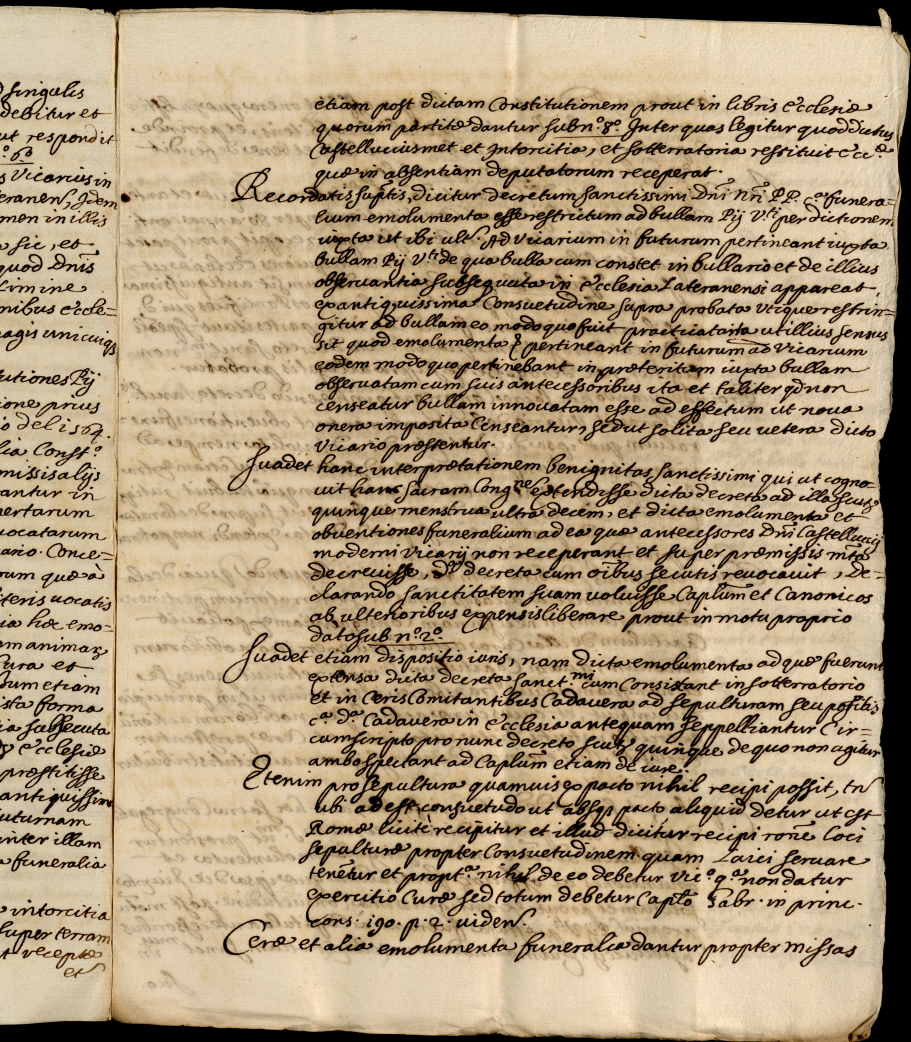 singulis
debitur et
ut respondit
n.º 63
s Vicarius in
teranens, Idem
men in illis
a sic, et
quod Dnīs
Limine
nibus eccle=
magis unicuiqȝ
tutiones Pij
ione prius
o del 1564.
lia Const.º
missis alijs
antur in
pertarum
uocatarum
ario. Conce=
rum quæ à
iteris uocatis
ia hæc emo=
am animarȝ
Cura et
sum etiam
ista forma
ia subsecuta
ecclesiæ
præstitisse
antiquissim
uturnam
inter illam
a funeralia
intorcitia
super terram
t recepte
et
etiam post dictam Constitutionem prout in libris Ecclesiæ
quorum partitæ dantur sub n.º 8.º Inter quas legitur quod dictus
Castelluciusmet et Intorcitia, et sotterratoria restituit Ecc.æ
quæ in absentiam deputatorum receperat.
Recordatis sup.tis, dicitur decretum sanctissimi Dnī Nrī P.P. c.ª funera=
lium emolumenta esse restrictum ad bullam Pij V.ti per dictionem
iuxta ut ibi ult. Ad Vicarium in futurum pertineant iuxta
bullam Pij V.ti de qua bulla cum constet in bullario et de illius
obseruantia subsequuta in Ecclesia Lateranensi appareat
ex antiquissima Consuetudine supra probata utique restrin=
gitur ad bullam eo modo quo fuit practicata ita ut illius sensus
sit quod emolumenta pertineant in futurum ad Vicarium
eodem modo quo pertinebant in præteritum iuxta bullam
obseruatam cum suis antecessoribus ita et taliter qd non
censeatur bullam innouatam esse ad effectum ut noua
onera imposita Censeantur, sed ut solita seu uetera dicto
Vicario præstentur.
Suadet hanc interpretationem benignitas Sanctissimi qui ut cogno=
uit hanc Sacram Cong.nem extendisse dicta decreta ad illa scut.
quinque menstrua ultra decem, et dicta emolumenta et
obuentiones funeralium ad ea quæ antecessores Dnī Castellucij
moderni Vicarij non receperant et super præmissis m.ta
decreuisse, d.ª decreta cum oībus secutis reuocauit, De=
clarando sanctitatem suam uoluisse Caplum et Canonicos
ab ulterioribus expensis liberare prout in motu proprio
dato sub n.º 2.º
Suadet etiam dispositio iuris, nam dicta emolumenta ad quæ fuerunt
extensa dicta decreta Sanct.mi cum Consistant in sotterratorio
et in Ceris Comitantibus Cadauera ad sepulturam seu positis
c.ª d.ª Cadauera in Ecclesia antequam seppelliantur Cir=
cumscripto pro nunc decreto scut. quinque de quo non agitur
ambo spectant ad Caplum etiam de iure.
Etenim pro sepultura quamuis ex pacto nihil recipi possit, tn̄
ubi adest consuetudo ut absqȝ pacto aliquid detur ut est
Romæ licitè recipitur et illud dicitur recipi rōne loci
sepulturæ propter Consuetudinem quam Laici seruare
tenētur et propt.ª nihil de eo debetur Vic.º q.ª non datur
exercitio Curæ sed totum debetur Caplō Fabr. in princ.
cons. 190. p. 2. uiden.
Ceræ et alia emolumenta funeralia dantur propter missas